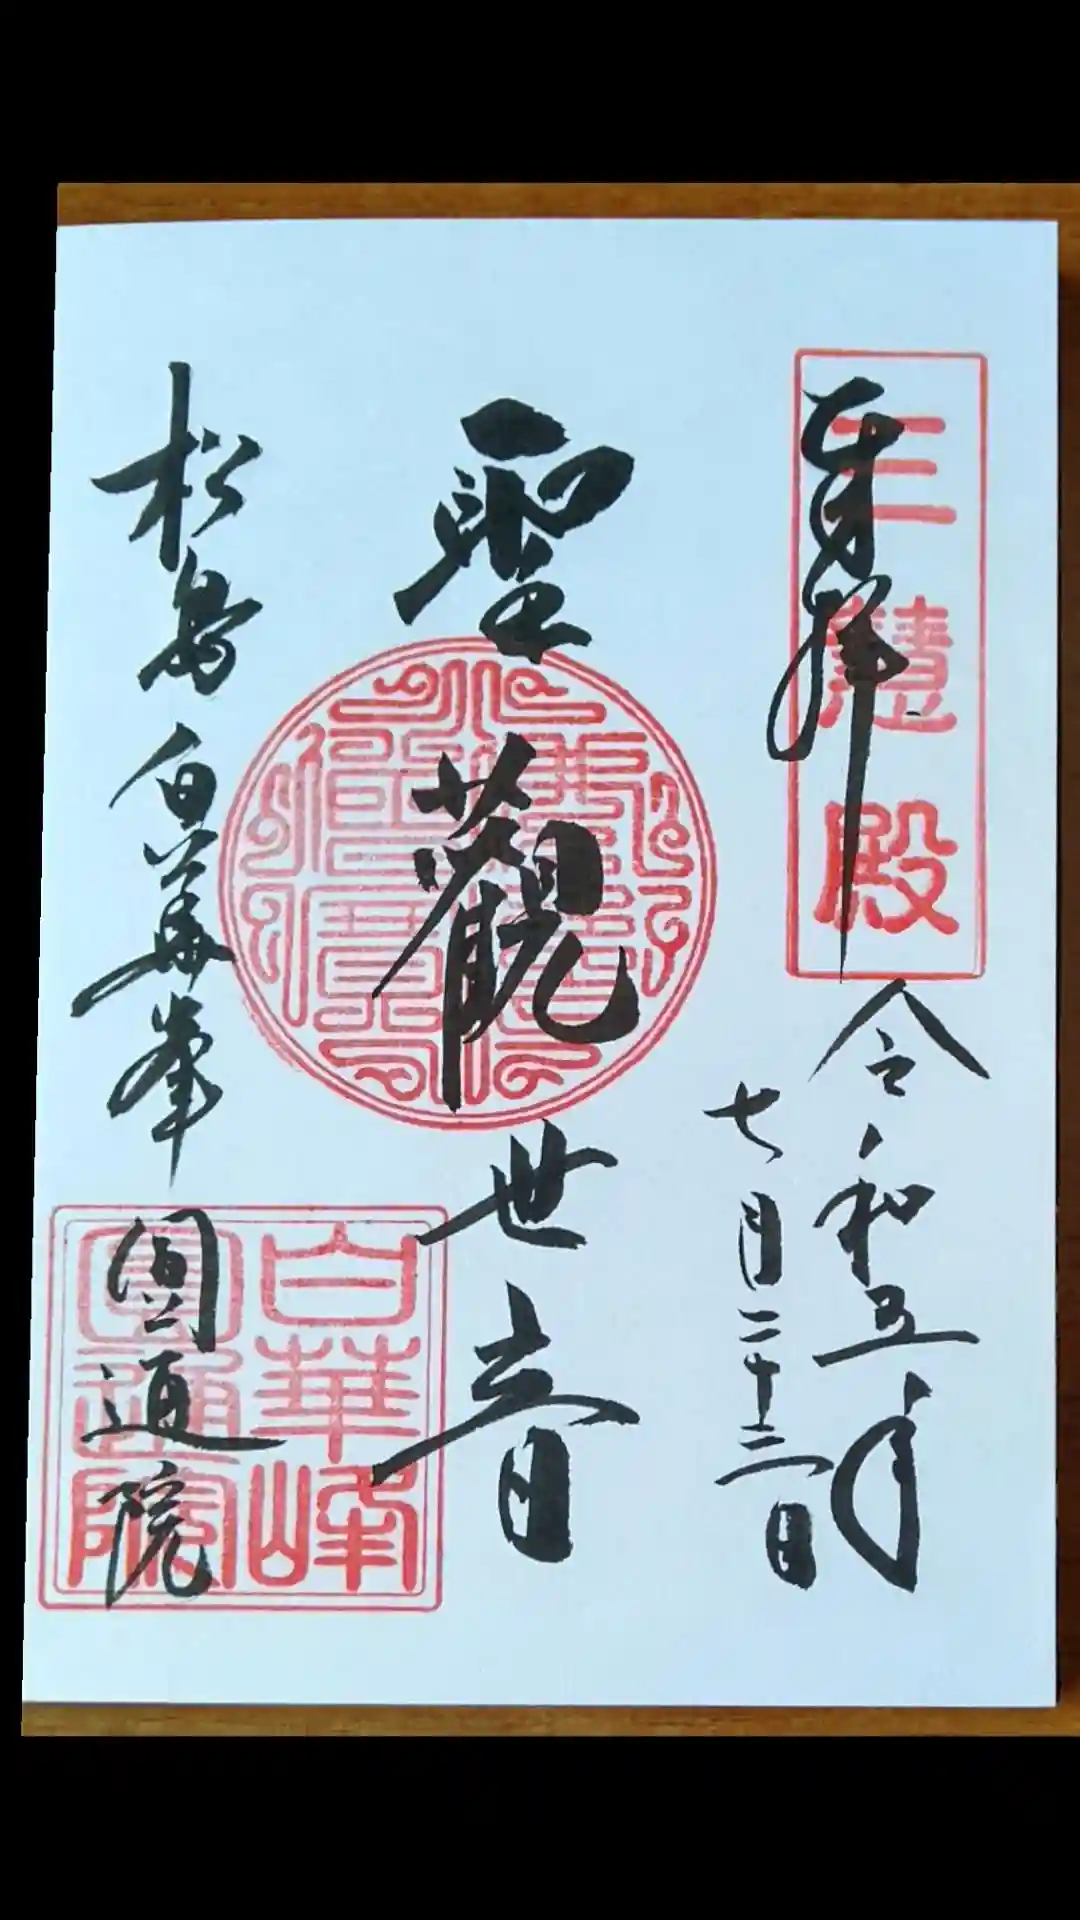 奉拝
三慧殿
令和五年
七月二十三日
聖観世音
松島白華峯圓通院
白華峰
圓通院